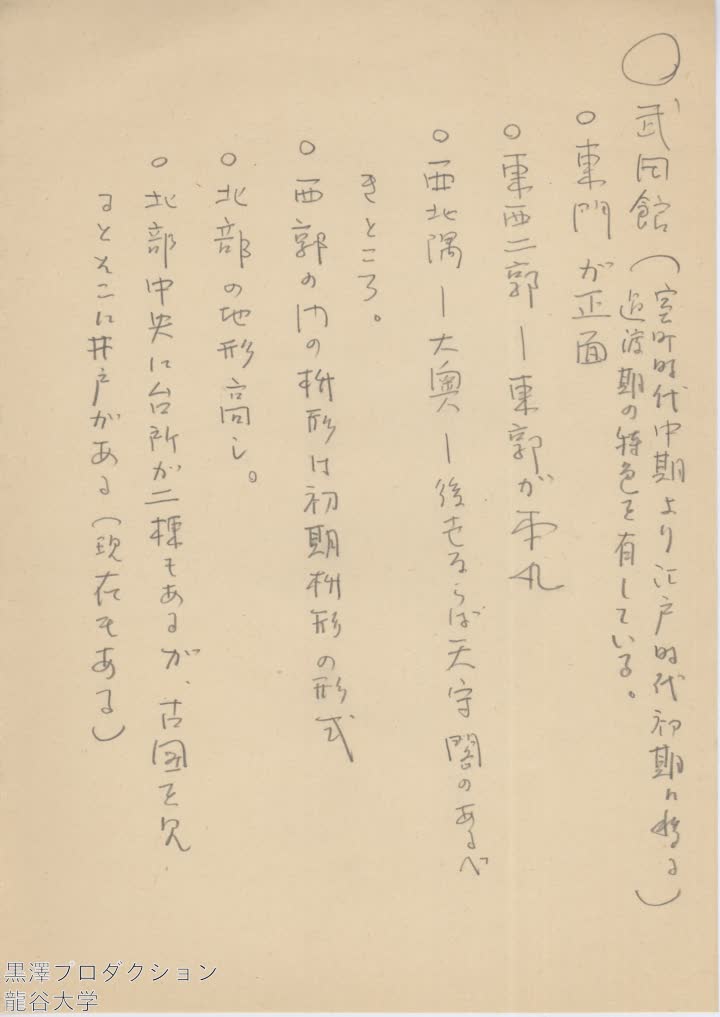 ○ 武田館(室町時代中期より江戸時代初期に移る)
過渡期の特色を有している。
○ 東門が正面
○ 東西二郭―東郭が本丸
○ 西北隅―大奥―後世ならば天守閣のあるべ
きところ。
○ 西郭の内の枡形は初期枡形の形式
○ 北部の地形高し。
○ 北部中央に台所が二棟もあるが、古図を見
るとそこに井戸がある(現在もある)
黒澤プロダクション
龍谷大学